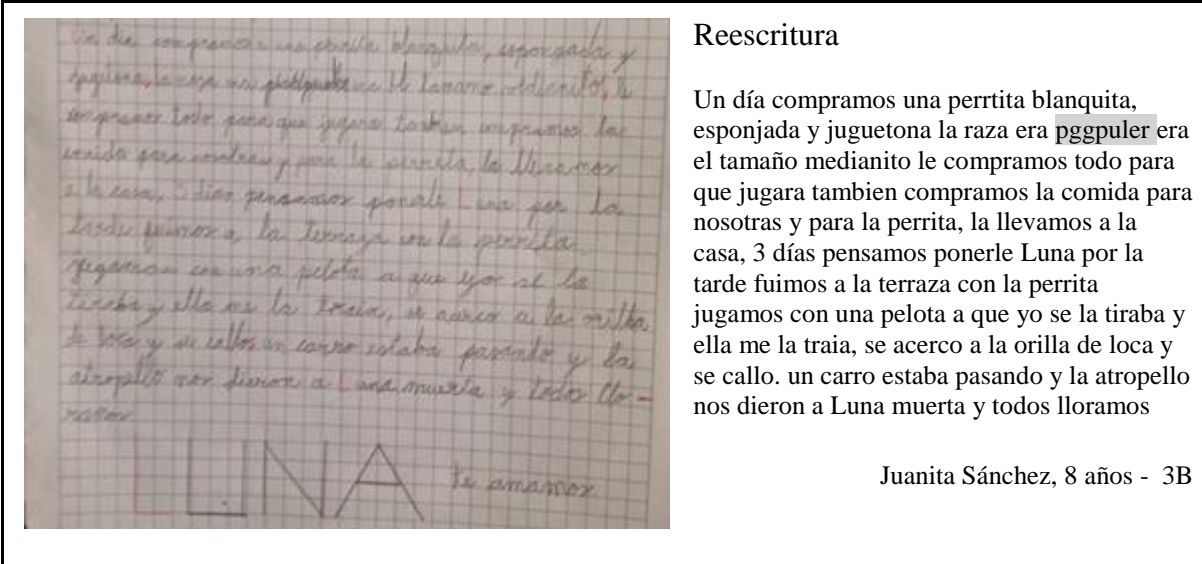 Un dia compramos una perrita blanquita, esponjada y
juguetona, la raza era era el tamano medianito, le
compramos todo para que jugara compramos la
comida para nosotras y para la perrita, la llevamos
a la casa, 3 dias pensamos ponerle Luna por la
tarde fuimos a, la terraza con la perrita
jugamos con una pelota a que yo se la
tiraba y ella me la traia, se acerco a la orilla
de loca y se callo, un carro estaba pasando y la
atropello nos dieron a Luna muerta y todos llo-
ramos
LUNA te amamos
Reescritura
Un día compramos una perrtita blanquita,
esponjada y juguetona la raza era pggpuler era
el tamaño medianito le compramos todo para
que jugara tambien compramos la comida para
nosotras y para la perrita, la llevamos a la
casa, 3 días pensamos ponerle Luna por la
tarde fuimos a la terraza con la perrita
jugamos con una pelota a que yo se la tiraba y
ella me la traia, se acerco a la orilla de loca y
se callo. un carro estaba pasando y la atropello
nos dieron a Luna muerta y todos lloramos
Juanita Sánchez, 8 años - 3B